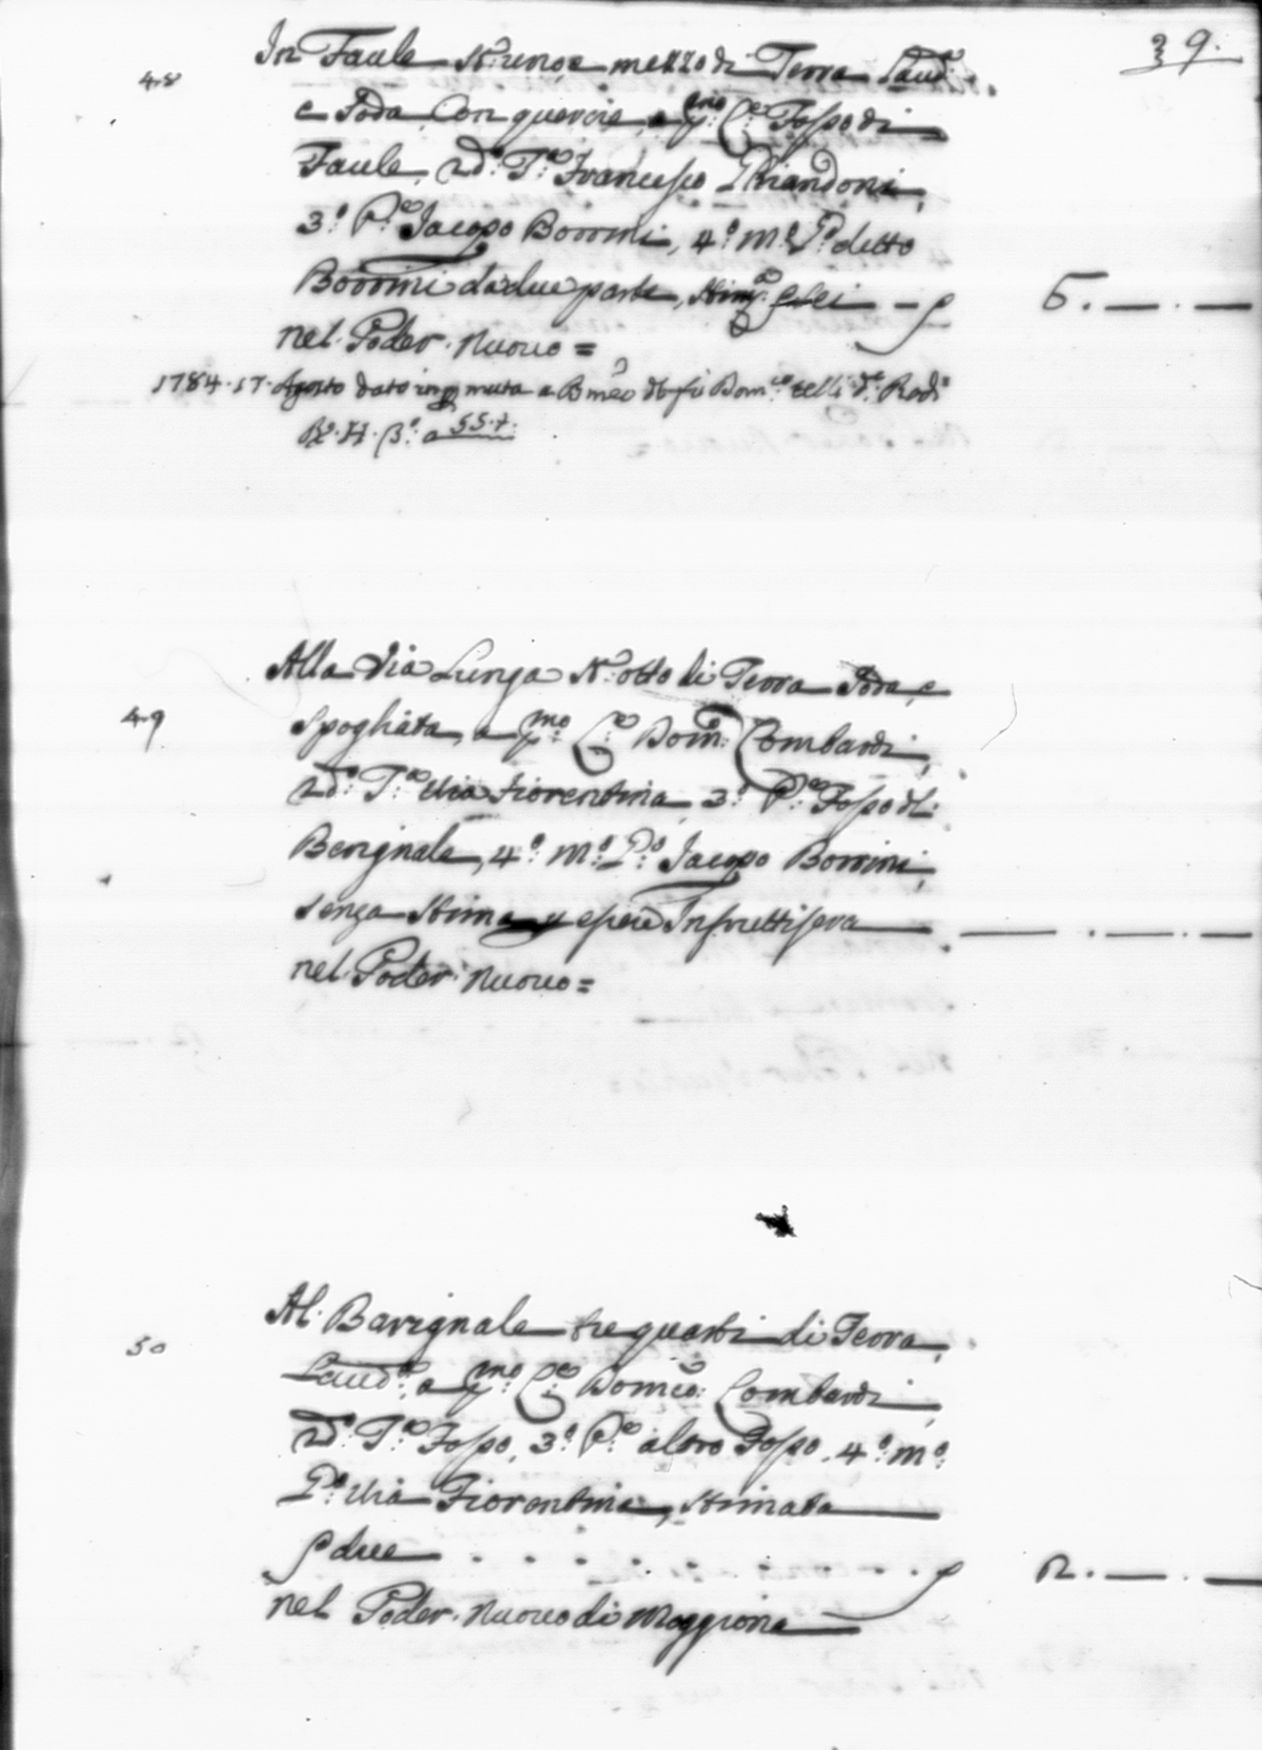 39.
48
In Faule St: uno, e mezzo di Terra Laud:
e Soda, Con quercie, a pmo: Co: Fosso di
Faule, 2do: To: Francesco Chiandoni,
3o: Po: Jacopo Borrini, 4o: Mo: Po: detto
Borrini da due parte, Stim: £ sei — £ 6. — . —
nel Poder. Nuovo =
1784. 17. Agosto dato in muta a Bmeo
a 55.t.
49
Alla Via Lunga St: otto di Terra Soda, e
Spogliata, a pmo: Co: Dom: Lombardi,
2do: To: Via Fiorentina, 3o: Po: Fosso del:
Berignale, 4o: Mo: Po: Jacopo Borrini,
senza Stima p essere Infruttifera — — . — . —
nel Poder: Nuovo =
50
Al. Barignale tre quarti di Terra,
Laud:, a pmo: Co: Domco: Lombardi,
2do: To: Fosso, 3o: Po: altro Fosso, 4o: Mo:
Po: Via Fiorentina, Stimata
£ due . . . . . . . . £ 2. — . —
nel Poder. Nuovo di Moggiona